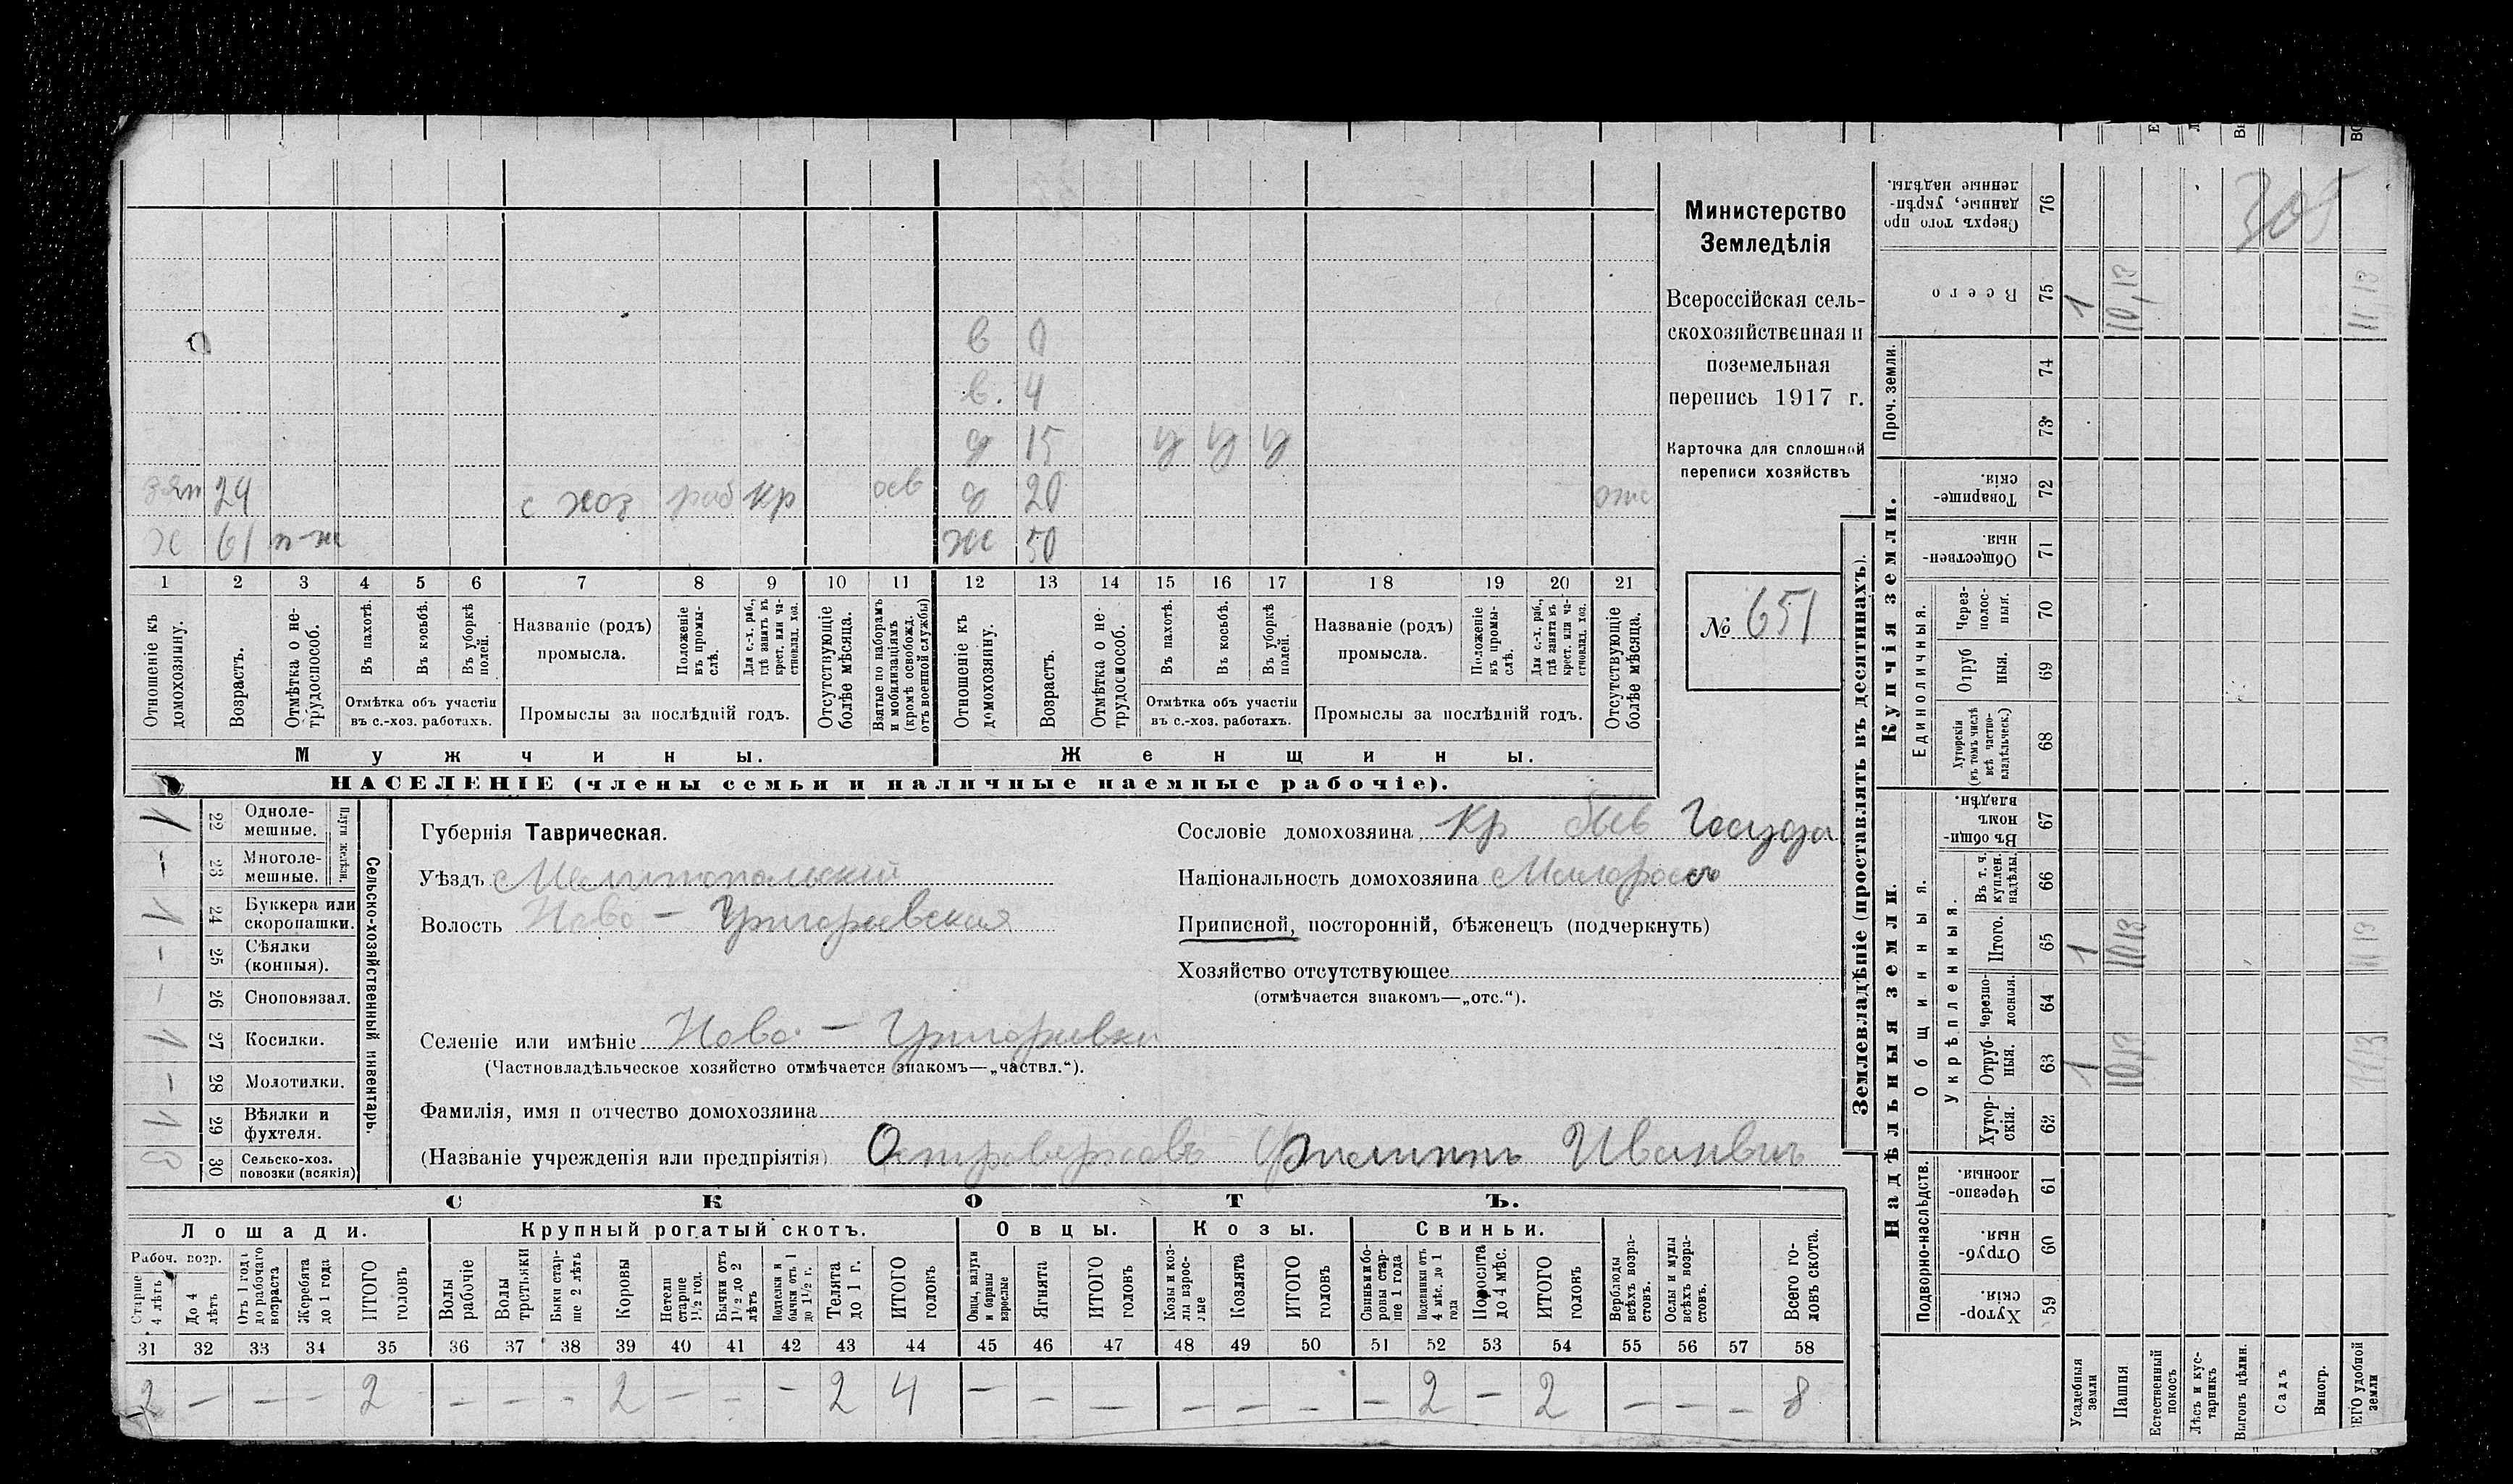 Министерство
Земледѣлія
Всероссійская сель-
скохозяйственная и
поземельная
перепись 1917 г.
Карточка для сплошной
переписи хозяйствъ
№ 651
305
в 0
в. 4
д 15 у у у
зят 24 с хоз раб кр осв д 20 отс
х 61 н-ж ж 50
1 2 3 4 5 6 7 8 9 10 11 12 13 14 15 16 17 18 19 20 21
Отношеніе къ домохозяину.
Возрастъ.
Отмѣтка о не-трудоспособ.
Въ пахотѣ.
Въ косьбѣ.
Въ уборкѣ полей.
Отмѣтка объ участіи
въ с.-хоз. работахъ.
Названіе (родъ)
промысла.
Положеніе въ промы-слѣ.
Для с.-х. раб., гдѣ занятъ въ крест. или ча-стновлад. хоз.
Промыслы за послѣдній годъ.
Отсутствующіе болѣе мѣсяца.
Взятые по наборамъ и мобилизаціямъ (кромѣ освобожд. отъ военной службы)
Отношеніе къ домохозяину.
Возрастъ.
Отмѣтка о не-трудоспособ.
Въ пахотѣ.
Въ косьбѣ.
Въ уборкѣ полей.
Отмѣтка объ участіи
въ с.-хоз. работахъ.
Названіе (родъ)
промысла.
Положеніе въ промы-слѣ.
Для с.-х. раб., гдѣ занята въ крест. или ча-стновлад. хоз.
Промыслы за послѣдній годъ.
Отсутствующіе болѣе мѣсяца.
Мужчины. Женщины.
НАСЕЛЕНІЕ (члены семьи и наличные наемные рабочіе).
Сельско-хозяйственный инвентарь.
Плуги желѣзн.
1 22 Одноле-мешные.
– 23 Многоле-мешные.
1 24 Буккера или скоропашки.
– 25 Сѣялки (конныя).
– 26 Сноповязал.
1 27 Косилки.
– 28 Молотилки.
1 29 Вѣялки и фухтеля.
30 Сельско-хоз. повозки (всякія)
Губернія Таврическая.
Уѣздъ Мелитопольскій
Волость Ново-Григорьевская
Сословіе домохозяина кр быв Госуда
Національность домохозяина Малороссъ
Приписной, посторонній, бѣженецъ (подчеркнуть)
Хозяйство отсутствующее
(отмѣчается знакомъ—„отс.“).
Селеніе или имѣніе Ново-Григорьевки
(Частновладѣльческое хозяйство отмѣчается знакомъ—„частвл.“).
Фамилія, имя и отчество домохозяина
(Названіе учрежденія или предпріятія) Островерховъ Филиппъ Иванвичъ
СКОТЪ.
Лошади. Крупный рогатый скотъ. Овцы. Козы. Свиньи.
Рабоч. возр.
Старше 4 лѣтъ
До 4 лѣтъ
Отъ 1 года до рабочаго возраста
Жеребята до 1 года
ИТОГО головъ
Волы рабочіе
Волы третьяки
Быки стар-ше 2 лѣтъ
Коровы
Нетели старше 1½ год.
Бычки отъ 1½ до 2 лѣтъ
Подтелки и бычки отъ 1 до 1½ г.
Телята до 1 г.
ИТОГО головъ
Овцы, валухи и бараны взрослые
Ягнята
ИТОГО головъ
Козы и коз-лы взрос-лые
Козлята
ИТОГО головъ
Свиньи и бо-ровы стар-ше 1 года
Подсвинки отъ 4 мѣс. до 1 года
Поросята до 4 мѣс.
ИТОГО головъ
Верблюды всѣхъ возра-стовъ.
Ослы и мулы всѣхъ возра-стовъ.
Всего го-ловъ скота.
31 32 33 34 35 36 37 38 39 40 41 42 43 44 45 46 47 48 49 50 51 52 53 54 55 56 57 58
2 – – – 2 – – – 2 – – – 2 4 – – – – – – – 2 – 2 – – – 8
Землевладѣніе (проставлять въ десятинахъ).
Купчія земли.
Надѣльныя земли.
Сверхъ того про-данные, укрѣп-ленные надѣлы. 76
Всего 75 1 10,13 11,13
Проч. земли.
74
73
Товарище-скія. 72
Обществен-ныя. 71
Единоличныя.
Через-полос-ныя. 70
Отруб-ныя. 69
Хуторскія (въ томъ числѣ всѣ частно-владѣльческ.) 68
Общинныя.
Въ общи-номъ владѣн. 67
Въ т. ч. куплен. надѣлы. 66
Укрѣпленныя.
Итого. 65 1 10,13 11,13
Черезпо-лосныя. 64
Отруб-ныя. 63 1 10,13 11,13
Хутор-скія. 62
Подворно-наслѣдств.
Черезпо-лосныя. 61
Отруб-ныя. 60
Хутор-скія. 59
Усадебныя земли
Пашня
Естественный покосъ
Лѣсъ и кус-тарникъ
Выгонъ цѣлин.
Садъ
Виногр.
ЕГО удобной земли